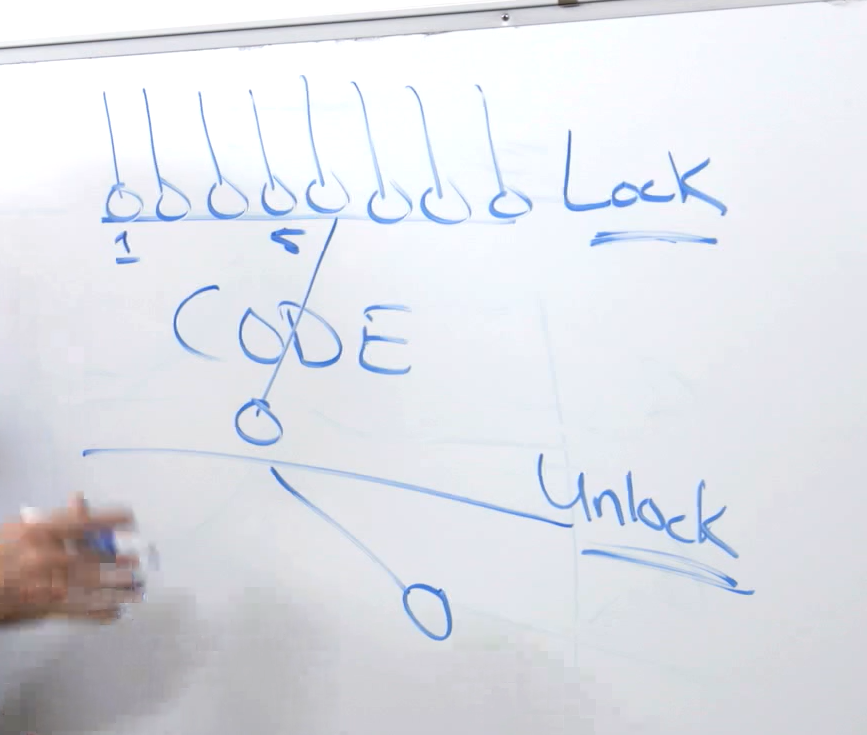 Lock
1 5
CODE
Unlock